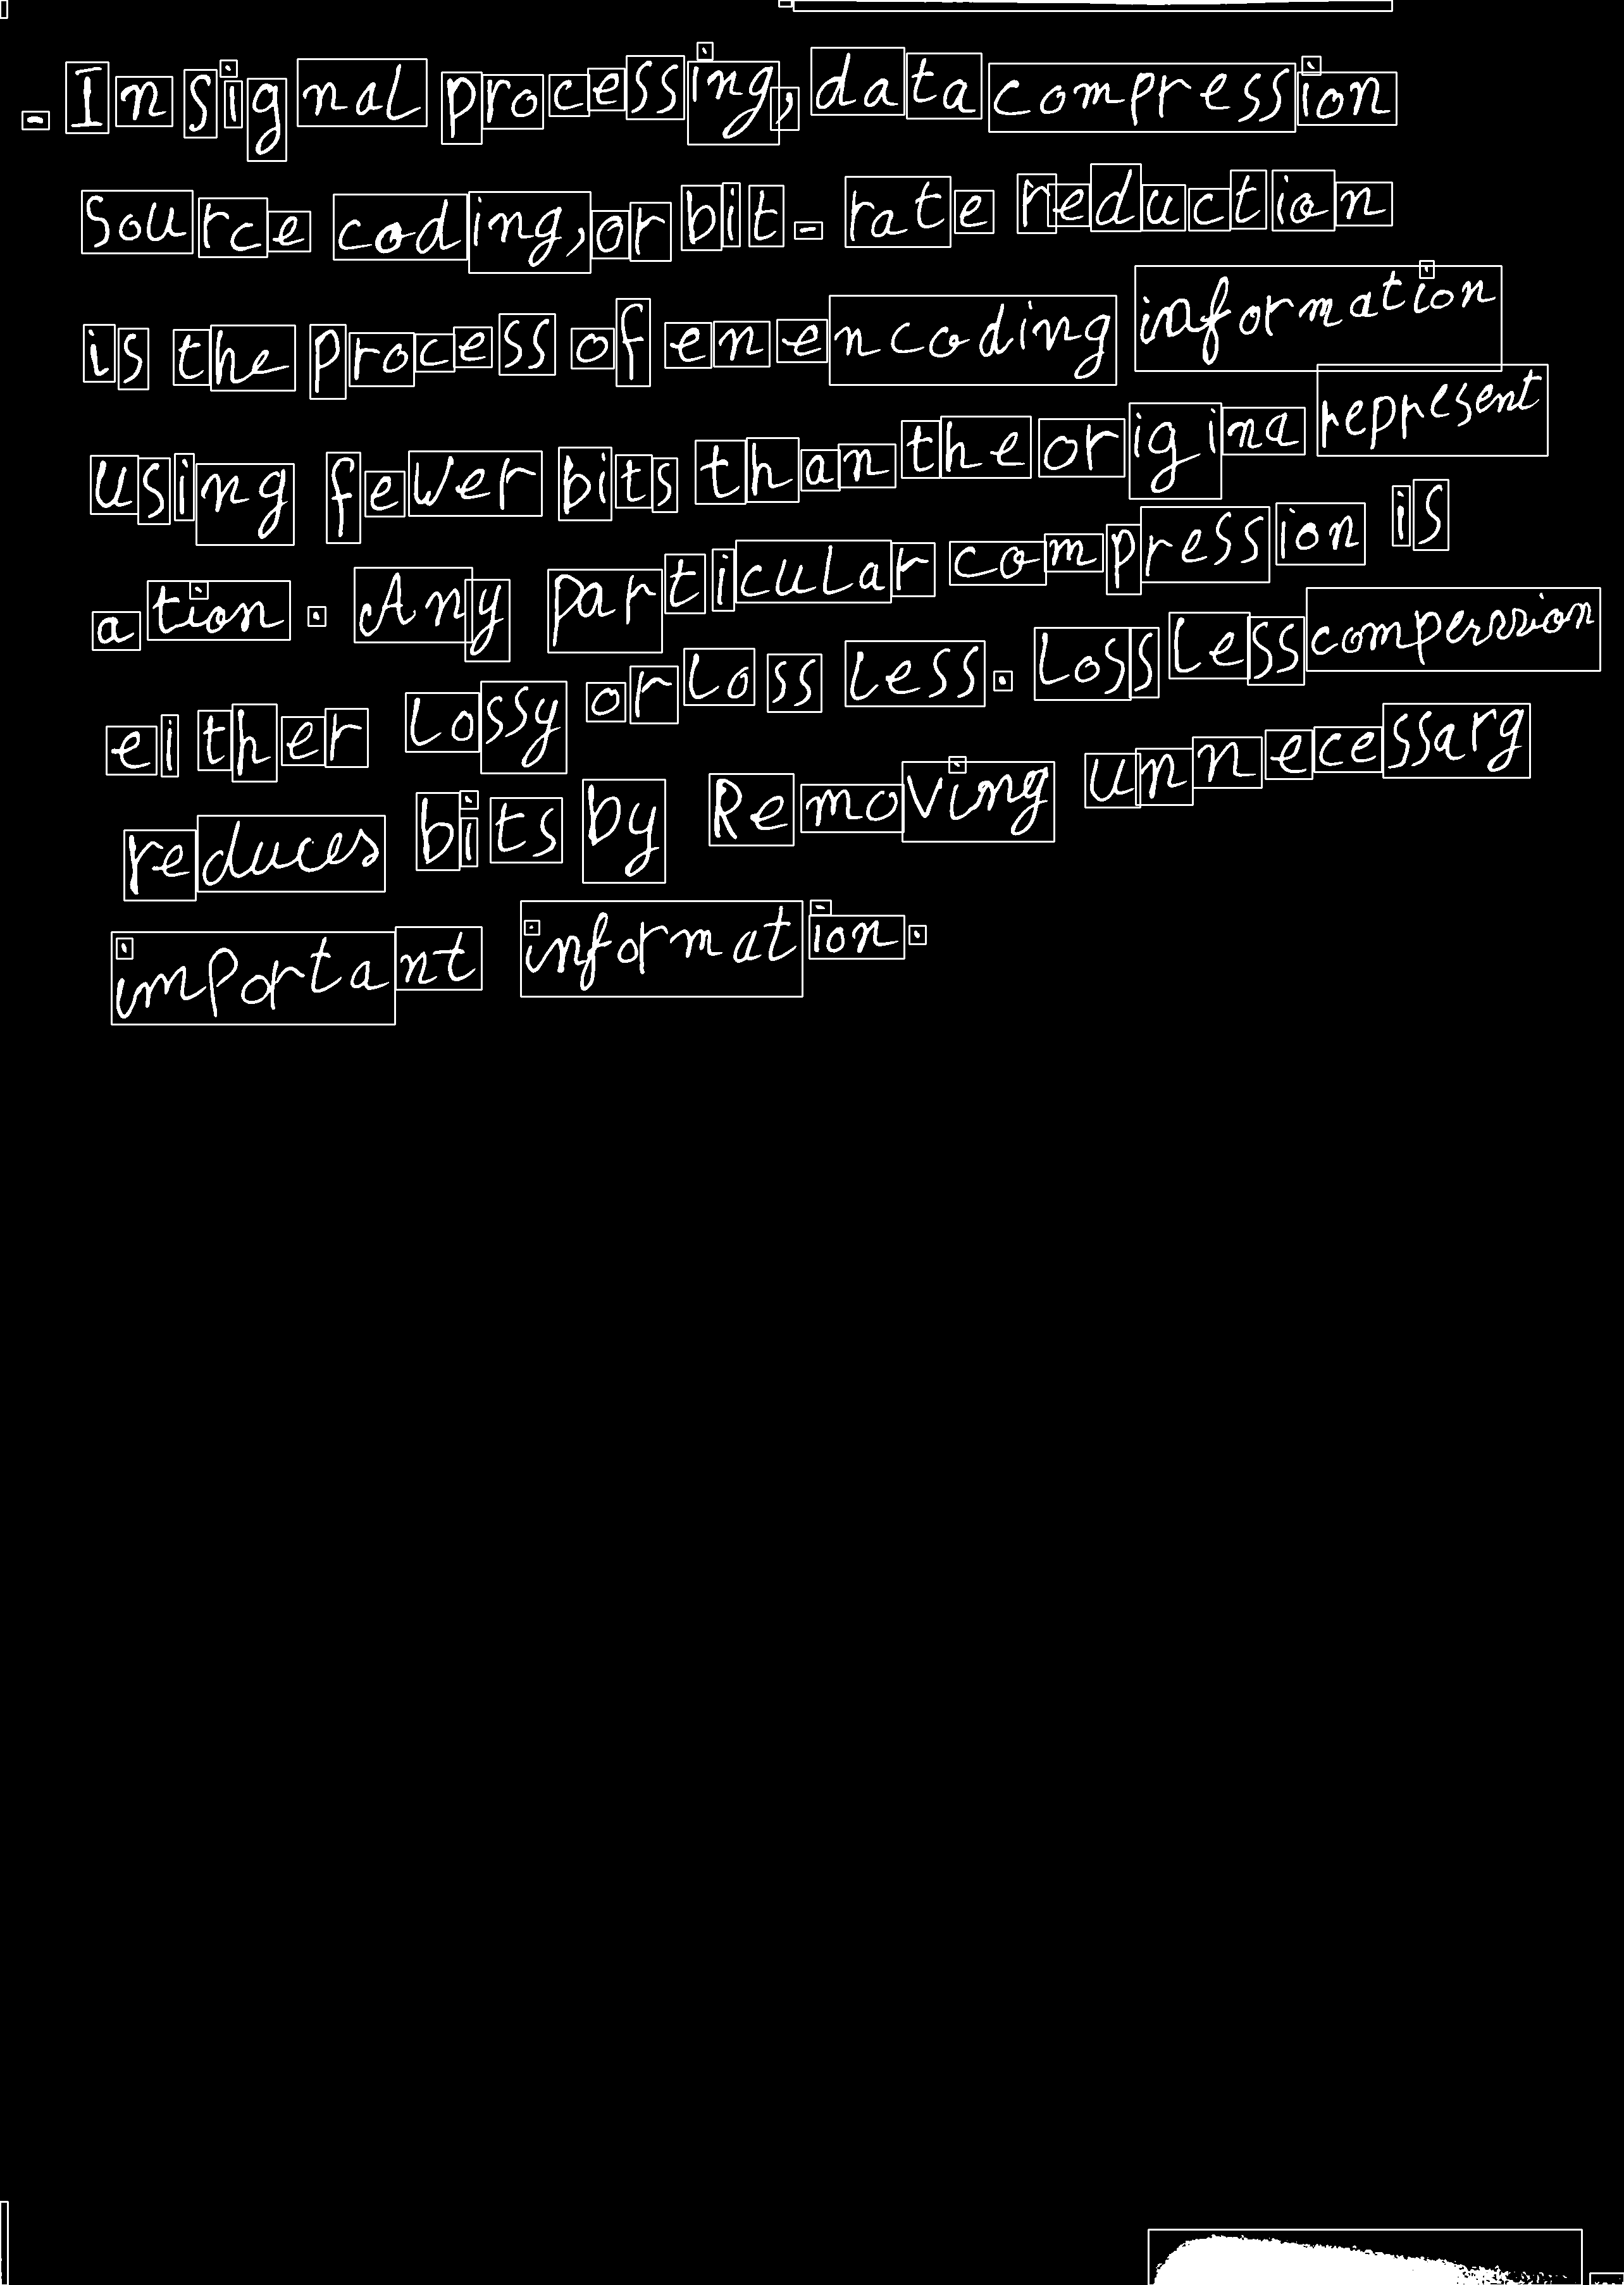 - In signal processing, data compression
Source coding, or bit-rate reduction
is the process of en encoding information
using fewer bits than the origina represent
ation. Any particular compression is
either Lossy or Loss Less. Loss Less comperssion
reduces bits by Removing unnecessarg
important information.